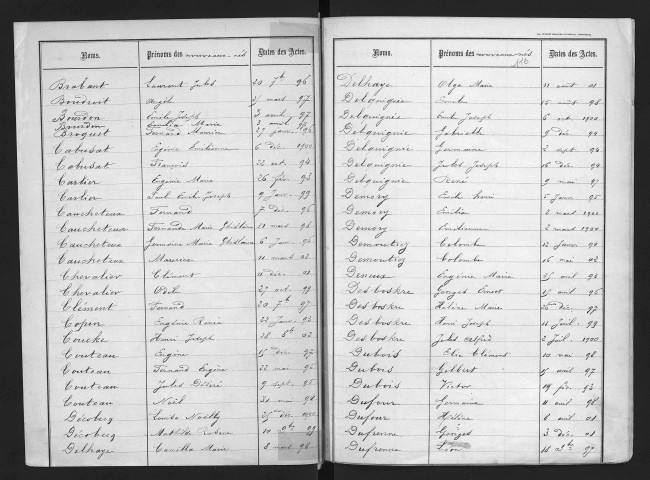 Noms. Prénoms des nouveaux-nés Dates des Actes.
Brabant Laurent Jules 20 7bre 96
Boudort Argil mars 97
Bourdon Emile Joseph 3 août 97
Bourdon Emilia Marie 3 août
Broquet Fernand Maurice 27 janv. 96
Cabusat Eugénie Emilienne 6 déc. 1900
Cabusat François 22 oct. 94
Cartier Eugénie Marie 26 fév. 93
Cartier Paul Emile Joseph 9 janv. 99
Caucheteux Fernand 7 déc. 96
Caucheteux Fernande Marie Ghislaine 21 mars 96
Caucheteux Germaine Marie Ghislaine 6 janv. 96
Caucheteux Maurice 11 mars 02
Chevalier Clément 11 déc. 01
Chevalier Odil 27 oct. 99
Clément Fernand 20 7bre 97
Copin Eugénie Renée 22 janv. 92
Coucke Henri Joseph 28 8bre 02
Couteau Eugène 15 déc. 97
Couteau Fernand Eugène 22 mai 96
Couteau Jules Désiré 9 sept. 95
Couteau Noël 31 mai 98
Décobecq Louise Noëlly 25 déc. 1900
Décobecq Mathilde 10 8bre 99
Delhaye Camilla Marie 8 mars 98
116
Noms. Prénoms des nouveaux-nés Dates des Actes.
Delhaye Olga Marie 11 août 01
Delquignie Emilie 15 août 96
Delquignie Emile Joseph 6 oct. 1900
Delquignie Gabrielle 9 déc. 01
Delquignie Germaine 2 sept. 94
Delquignie Jules Joseph 16 déc. 94
Delquignie René 9 mai 97
Demory Emile Henri 5 janv. 95
Demory Emilia 2 mars 1900
Demory Emilienne 2 mars 1900
Demoutiez Colomba 12 janv. 94
Demoutiez Colombe 16 mai 02
Deneux Eugénie Marie 25 avril 94
Desboskre Georges Ernest 15 avril 96
Desboskre Hélène Marie 26 déc. 97
Desboskre Henri Joseph 11 juil. 99
Desboskre Jules Alfred 2 juil. 1900
Dubois Elie Clément 10 mai 98
Dubois Gilbert 15 août 97
Dubois Victor 19 fév. 93
Dufour Germaine 11 avril 98
Dufour Hélène 8 avril 01
Dufrenne Georges 3 déc. 01
Dufrenne Léon 18 8bre 97